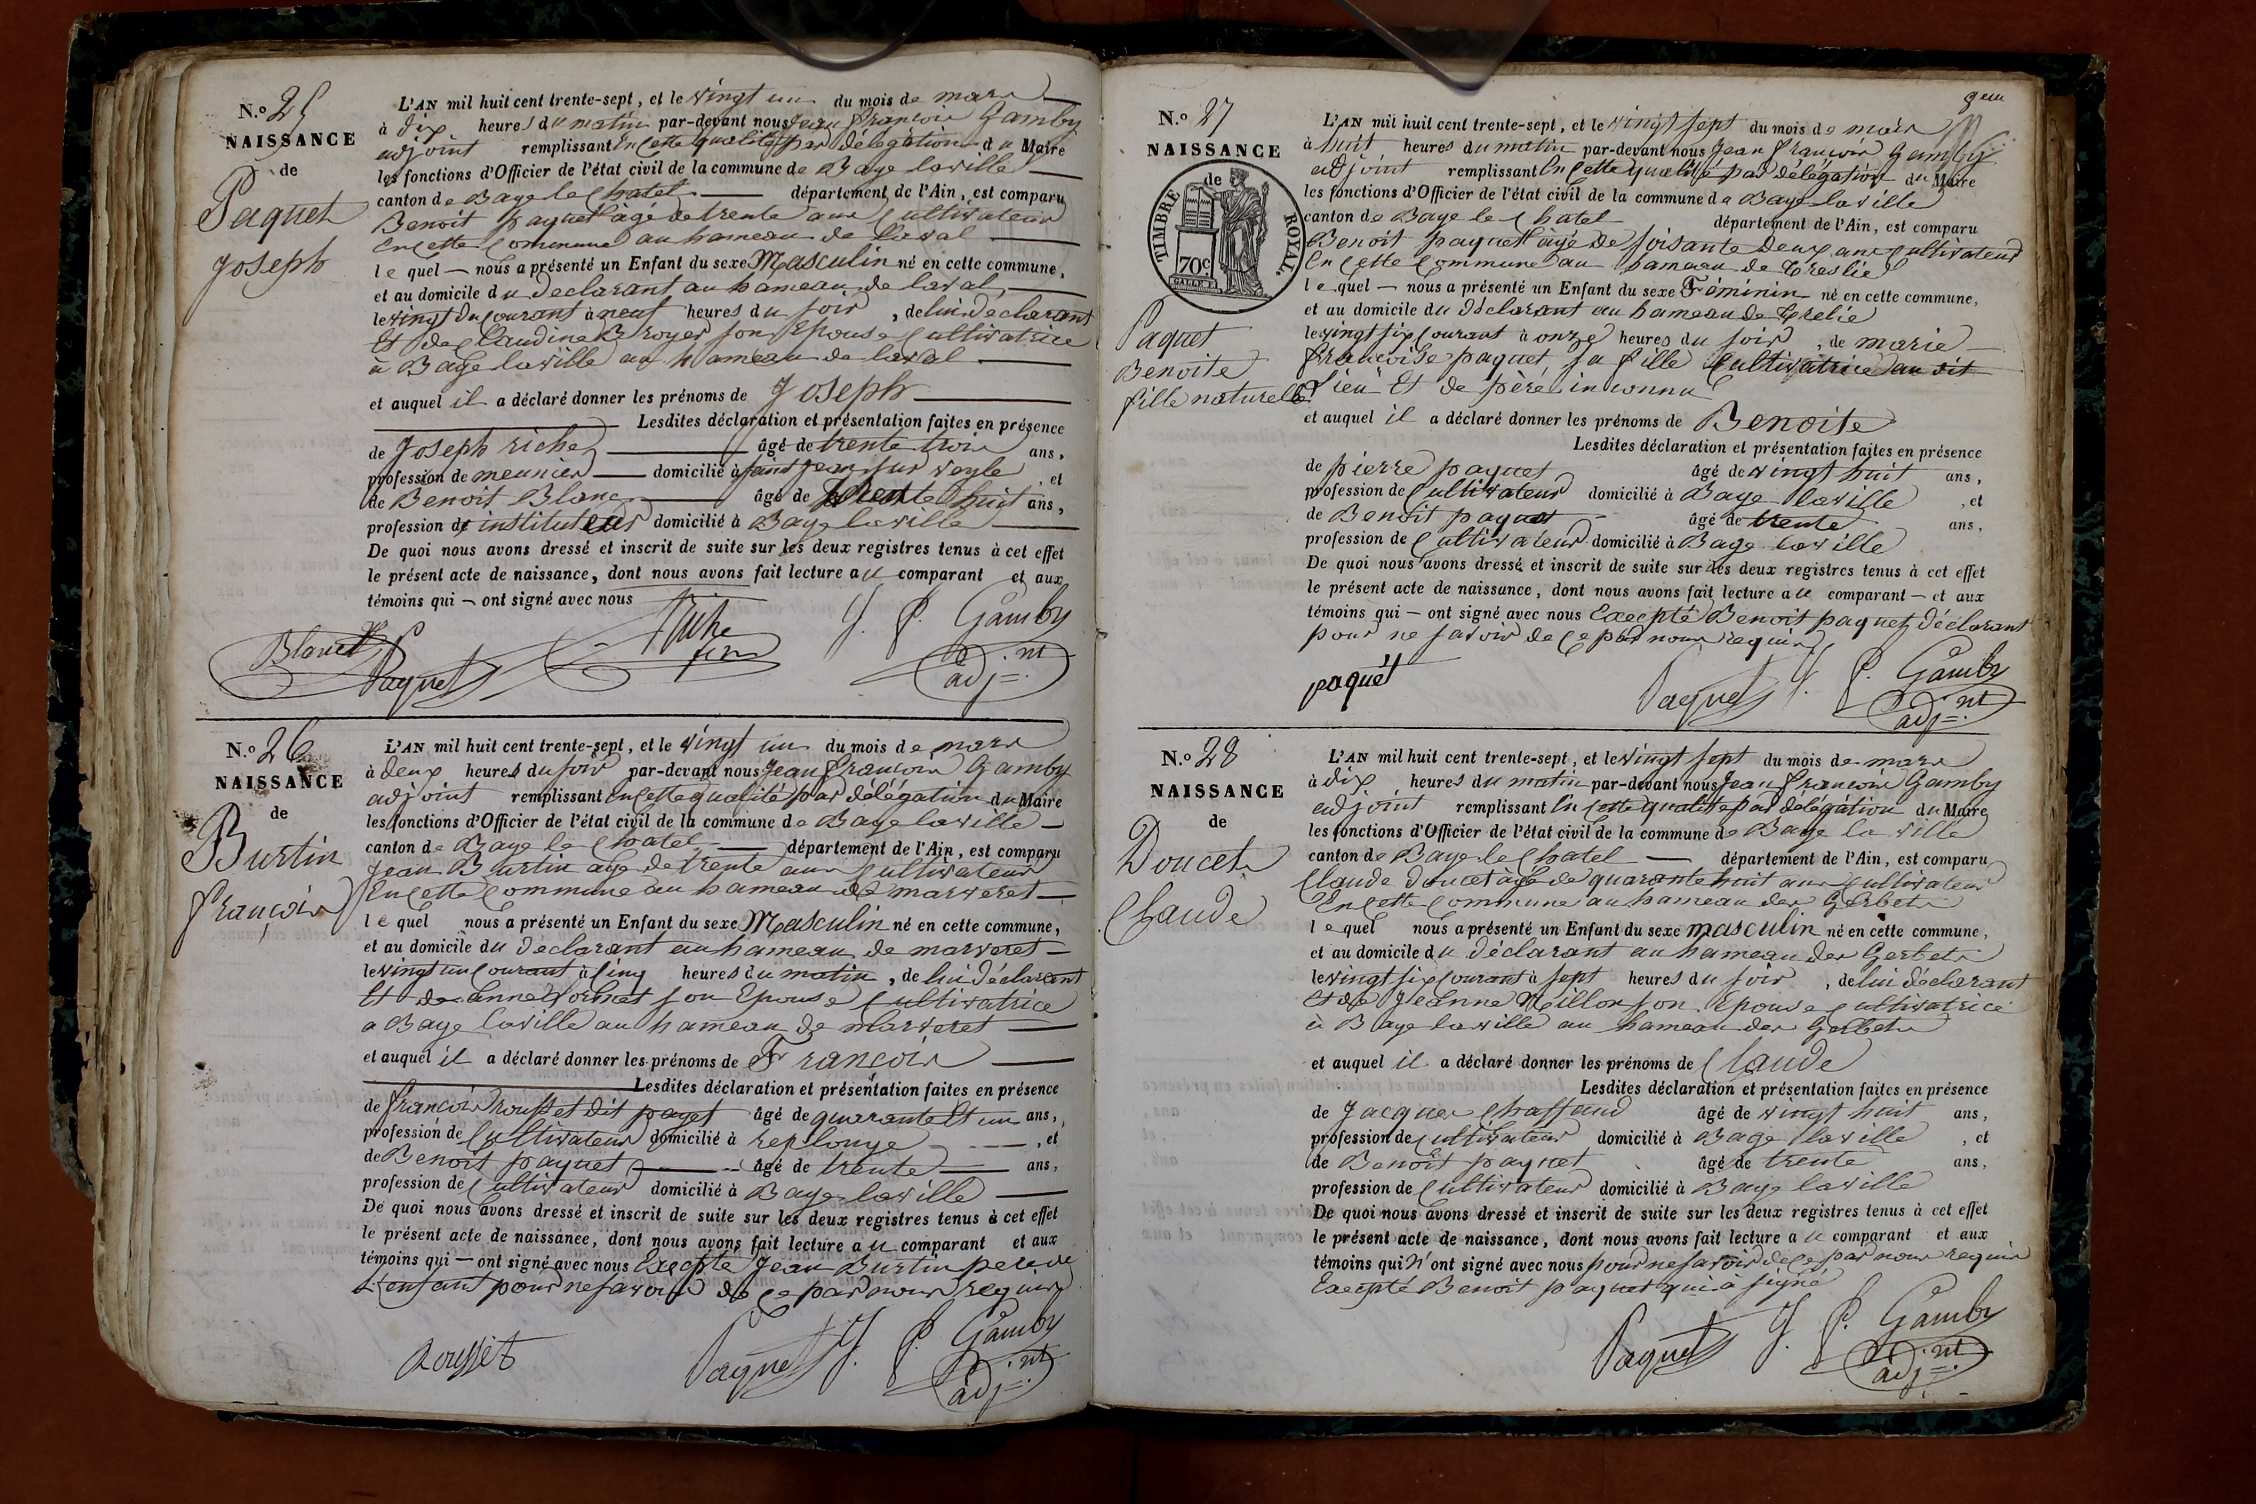 N.o 25
NAISSANCE
de
Paquet
Joseph
L'AN mil huit cent trente-sept, et le vingt un du mois de mars
à dix heures du matin par-devant nous Jean François Gamby
adjoint remplissant en cette qualité par délégation du Maire
les fonctions d'Officier de l'état civil de la commune de Bage la ville
canton de Bage le Chatel département de l'Ain, est comparu
Benoit paquet âgé de trente ans Cultivateur
en cette Commune au hameau de Laval
lequel nous a présenté un Enfant du sexe Masculin né en cette commune,
et au domicile du déclarant au hameau de laval
le vingt du courant à neuf heures du soir, de lui déclarant
Et de Claudine Broyer son Epouse Cultivatrice
à Bage la ville au hameau de laval
et auquel il a déclaré donner les prénoms de Joseph
Lesdites déclaration et présentation faites en présence
de Joseph riche âgé de trente trois ans,
profession de meunier domicilié à saint jean sur veyle, et
de Benoit Blanc âgé de trente huit ans,
profession de instituteur domicilié à Bage la ville
De quoi nous avons dressé et inscrit de suite sur les deux registres tenus à cet effet
le présent acte de naissance, dont nous avons fait lecture au comparant et aux
témoins qui - ont signé avec nous
Blanc Paquet Riche J. F. Gamby
adj.nt
N.o 26
NAISSANCE
de
Burtin
François
L'AN mil huit cent trente-sept, et le vingt un du mois de mars
à deux heures du soir par-devant nous Jean François Gamby
adjoint remplissant en cette qualité par délégation du Maire
les fonctions d'Officier de l'état civil de la commune de Bage la ville
canton de Bage le Chatel département de l'Ain, est comparu
Jean Burtin age de trente ans Cultivateur
En cette Commune au hameau de marveret
lequel nous a présenté un Enfant du sexe Masculin né en cette commune,
et au domicile du déclarant au hameau de marveret
le vingt un Courant à Cinq heures du matin, de lui déclarant
Et de anne son Epouse Cultivatrice
a Bage la ville au hameau de Marveret
et auquel il a déclaré donner les prénoms de François
Lesdites déclaration et présentation faites en présence
de françois rousset dit payet âgé de quarante Et un ans,
profession de Cultivateur domicilié à replonge, et
de Benoit paquet âgé de trente ans,
profession de Cultivateur domicilié à Bage la ville
De quoi nous avons dressé et inscrit de suite sur les deux registres tenus à cet effet
le présent acte de naissance, dont nous avons fait lecture au comparant et aux
témoins qui - ont signé avec nous Excepté Jean Burtin pere de
L'enfant pour ne savoir de ce par nous requis
Rousset Paquet J. F. Gamby
adj.nt
N.o 27
NAISSANCE
de
TIMBRE ROYAL.
70c
Paquet
Benoite
fille naturelle
L'AN mil huit cent trente-sept, et le vingt sept du mois de mars
à huit heures du matin par-devant nous Jean François Gamby
adjoint remplissant en cette qualité par délégation du Maire
les fonctions d'Officier de l'état civil de la commune de Bage la ville
canton de Bage le Chatel département de l'Ain, est comparu
Benoit paquet âgé de soisante deux ans Cultivateur
En Cette Commune au hameau de
lequel - nous a présenté un Enfant du sexe Féminin né en cette commune,
et au domicile du déclarant au hameau de
le vingt six Courant à onze heures du soir, de marie
françoise paquet sa fille Cultivatrice au dit
lieu Et de père inconnu
et auquel il a déclaré donner les prénoms de Benoite
Lesdites déclaration et présentation faites en présence
de pierre paquet âgé de vingt huit ans,
profession de Cultivateur domicilié à Bage la ville, et
de Benoit paquet âgé de trente ans,
profession de Cultivateur domicilié à Bage la ville
De quoi nous avons dressé et inscrit de suite sur les deux registres tenus à cet effet
le présent acte de naissance, dont nous avons fait lecture au comparant - et aux
témoins qui - ont signé avec nous Excepté Benoit paquet déclarant
pour ne savoir de ce par nous requis
paquet Paquet J. F. Gamby
adj.nt
N.o 28
NAISSANCE
de
Doucet
Claude
L'AN mil huit cent trente-sept, et le vingt sept du mois de mars
à dix heures du matin par-devant nous Jean François Gamby
adjoint remplissant en cette qualité par délégation du Maire
les fonctions d'Officier de l'état civil de la commune de Bage la ville
canton de Bage le Chatel département de l'Ain, est comparu
Claude doucet âgé de quarante huit ans Cultivateur
En cette Commune au hameau des Gerbets
lequel nous a présenté un Enfant du sexe masculin né en cette commune,
et au domicile du déclarant au hameau des Gerbets
le vingt six Courant à sept heures du soir, de lui déclarant
et de Jeanne Millon son Epouse Cultivatrice
à Bage la ville au hameau des Gerbets
et auquel il a déclaré donner les prénoms de Claude
Lesdites déclaration et présentation faites en présence
de Jacques Chaffaud âgé de vingt huit ans,
profession de Cultivateur domicilié à Bage la ville, et
de Benoit paquet âgé de trente ans,
profession de Cultivateur domicilié à Bage la ville
De quoi nous avons dressé et inscrit de suite sur les deux registres tenus à cet effet
le présent acte de naissance, dont nous avons fait lecture au comparant et aux
témoins qui n'ont signé avec nous pour ne savoir de ce par nous requis
Excepté Benoit paquet qui à signé
Paquet J. F. Gamby
adj.nt